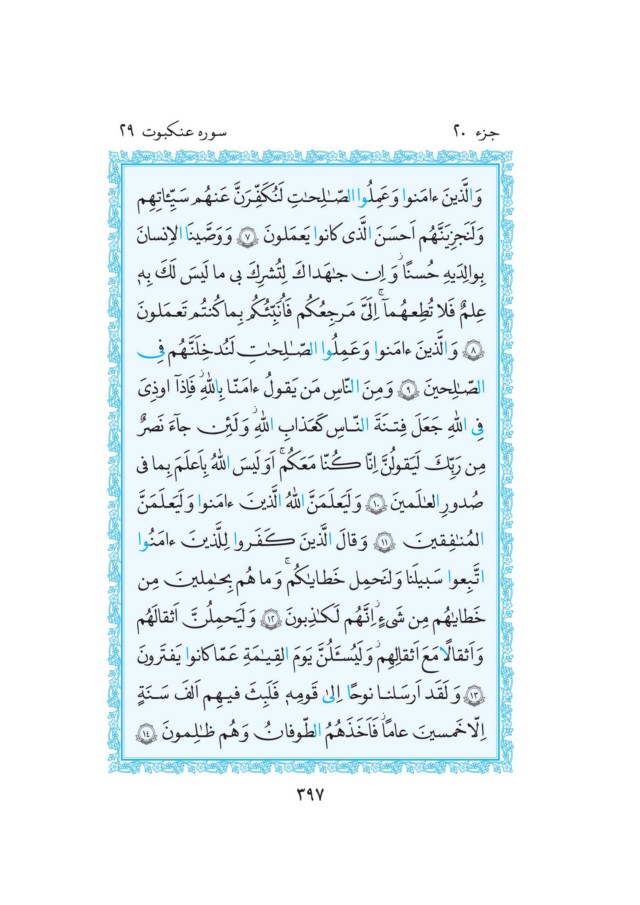 جزء ۲۰
سوره عنکبوت ۲۹
وَالَّذينَ ءامَنوا وَعَمِلُوا الصّٰلِحٰتِ لَنُكَفِّرَنَّ عَنهُم سَيِّـٔاتِهِم
وَلَنَجزِيَنَّهُم اَحسَنَ الَّذى كانوا يَعمَلونَ ﴿٧﴾ وَوَصَّينَا الاِنسانَ
بِوالِدَيهِ حُسنًا ۖ وَاِن جٰهَداكَ لِتُشرِكَ بى ما لَيسَ لَكَ بِه۪
عِلمٌ فَلا تُطِعهُمآ ۚ اِلَىَّ مَرجِعُكُم فَاُنَبِّئُكُم بِما كُنتُم تَعمَلونَ
﴿٨﴾ وَالَّذينَ ءامَنوا وَعَمِلُوا الصّٰلِحٰتِ لَنُدخِلَنَّهُم فِى
الصّٰلِحينَ ﴿٩﴾ وَمِنَ النّاسِ مَن يَقولُ ءامَنّا بِاللّٰهِ فَاِذآ اوذِىَ
فِى اللّٰهِ جَعَلَ فِتنَةَ النّاسِ كَعَذابِ اللّٰهِ ۖ وَلَئِن جآءَ نَصرٌ
مِن رَبِّكَ لَيَقولُنَّ اِنّا كُنّا مَعَكُم ۚ اَوَلَيسَ اللّٰهُ بِاَعلَمَ بِما فى
صُدورِ العٰلَمينَ ﴿١٠﴾ وَلَيَعلَمَنَّ اللّٰهُ الَّذينَ ءامَنوا وَلَيَعلَمَنَّ
المُنٰفِقينَ ﴿١١﴾ وَقالَ الَّذينَ كَفَروا لِلَّذينَ ءامَنُوا
اتَّبِعوا سَبيلَنا وَلنَحمِل خَطايٰكُم ۚ وَما هُم بِحٰمِلينَ مِن
خَطايٰهُم مِن شَىءٍ ۖ اِنَّهُم لَكٰذِبونَ ﴿١٢﴾ وَلَيَحمِلُنَّ اَثقالَهُم
وَاَثقالًا مَعَ اَثقالِهِم ۖ وَلَيُسـَٔلُنَّ يَومَ القِيٰمَةِ عَمّا كانوا يَفتَرونَ
﴿١٣﴾ وَلَقَد اَرسَلنا نوحًا اِلىٰ قَومِه۪ فَلَبِثَ فيهِم اَلفَ سَنَةٍ
اِلّا خَمسينَ عامًا فَاَخَذَهُمُ الطّوفانُ وَهُم ظٰلِمونَ ﴿١٤﴾
۳۹۷